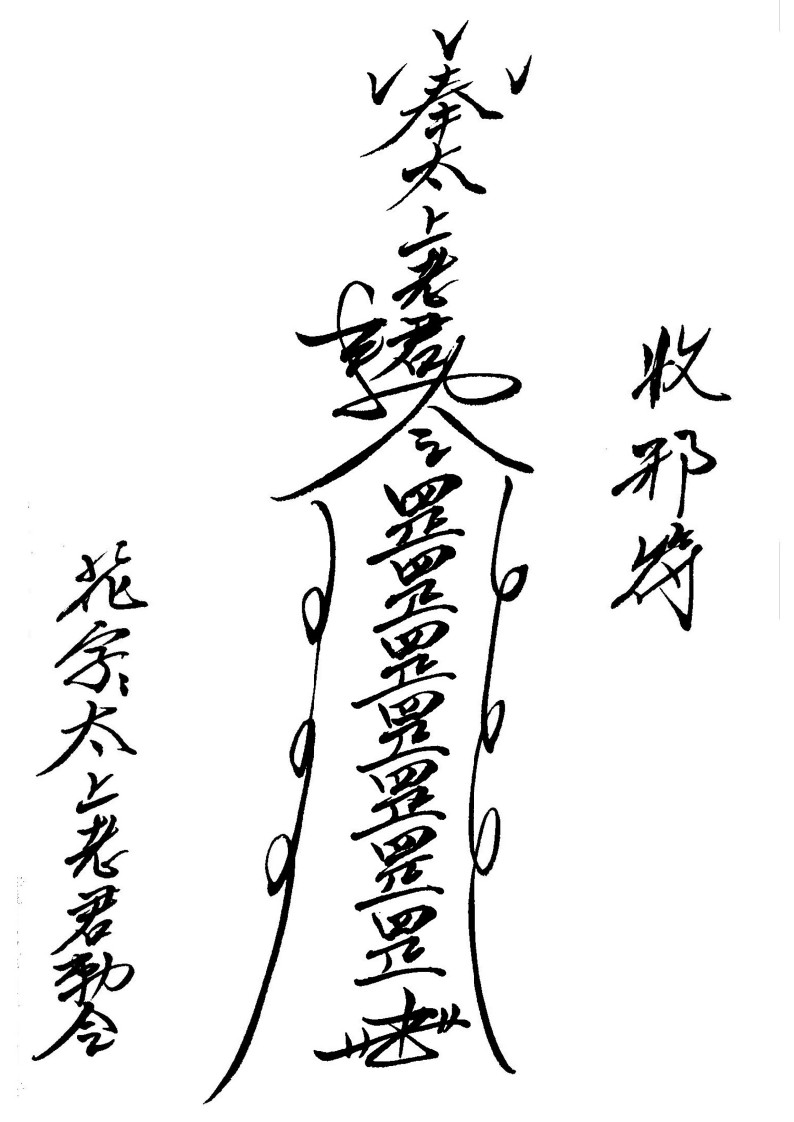 收邪符
奉太上老君敕令
罡罡罡罡罡罡罡
花字太上老君勅令